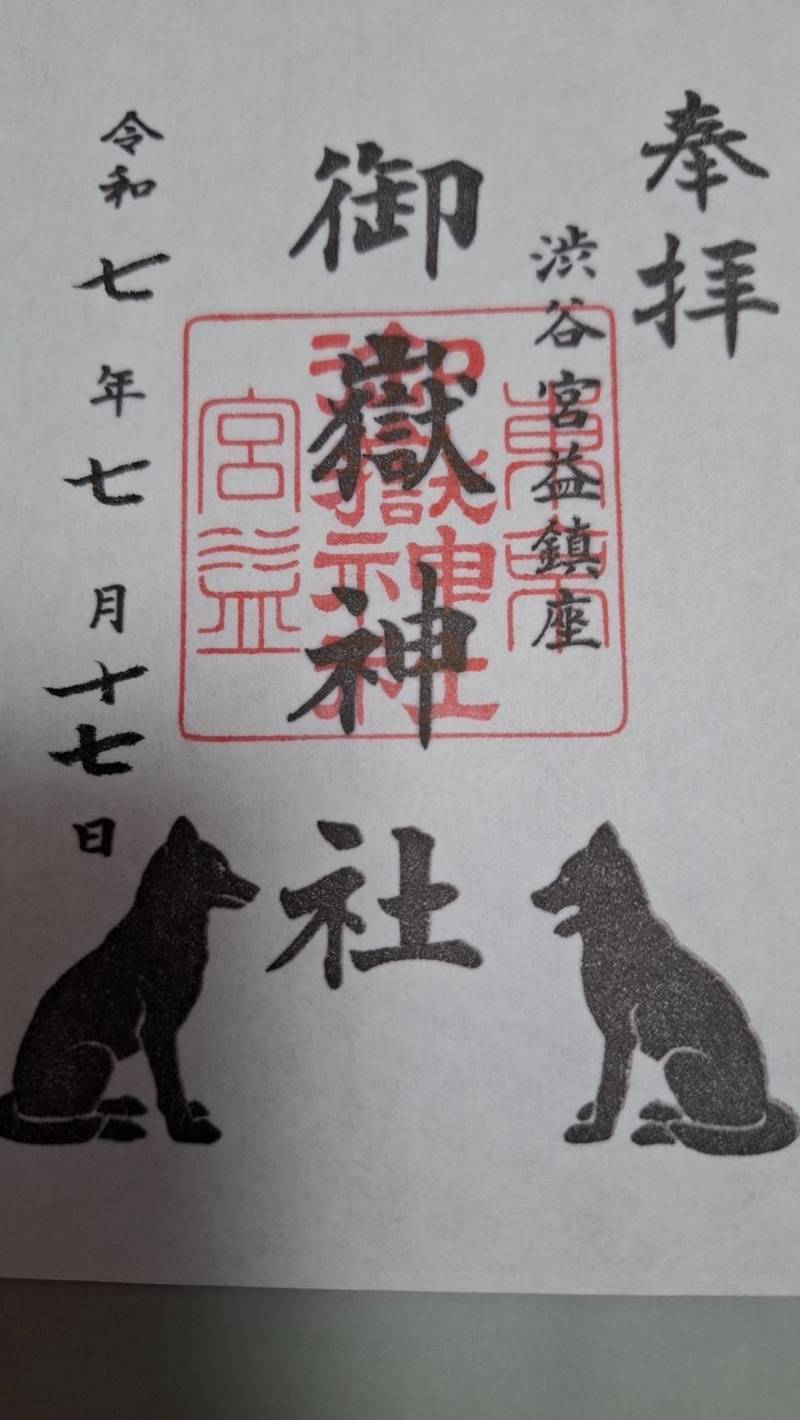 奉拝
渋谷宮益鎮座
御嶽神社
東京
御嶽神社
宮益
令和七年七月十七日